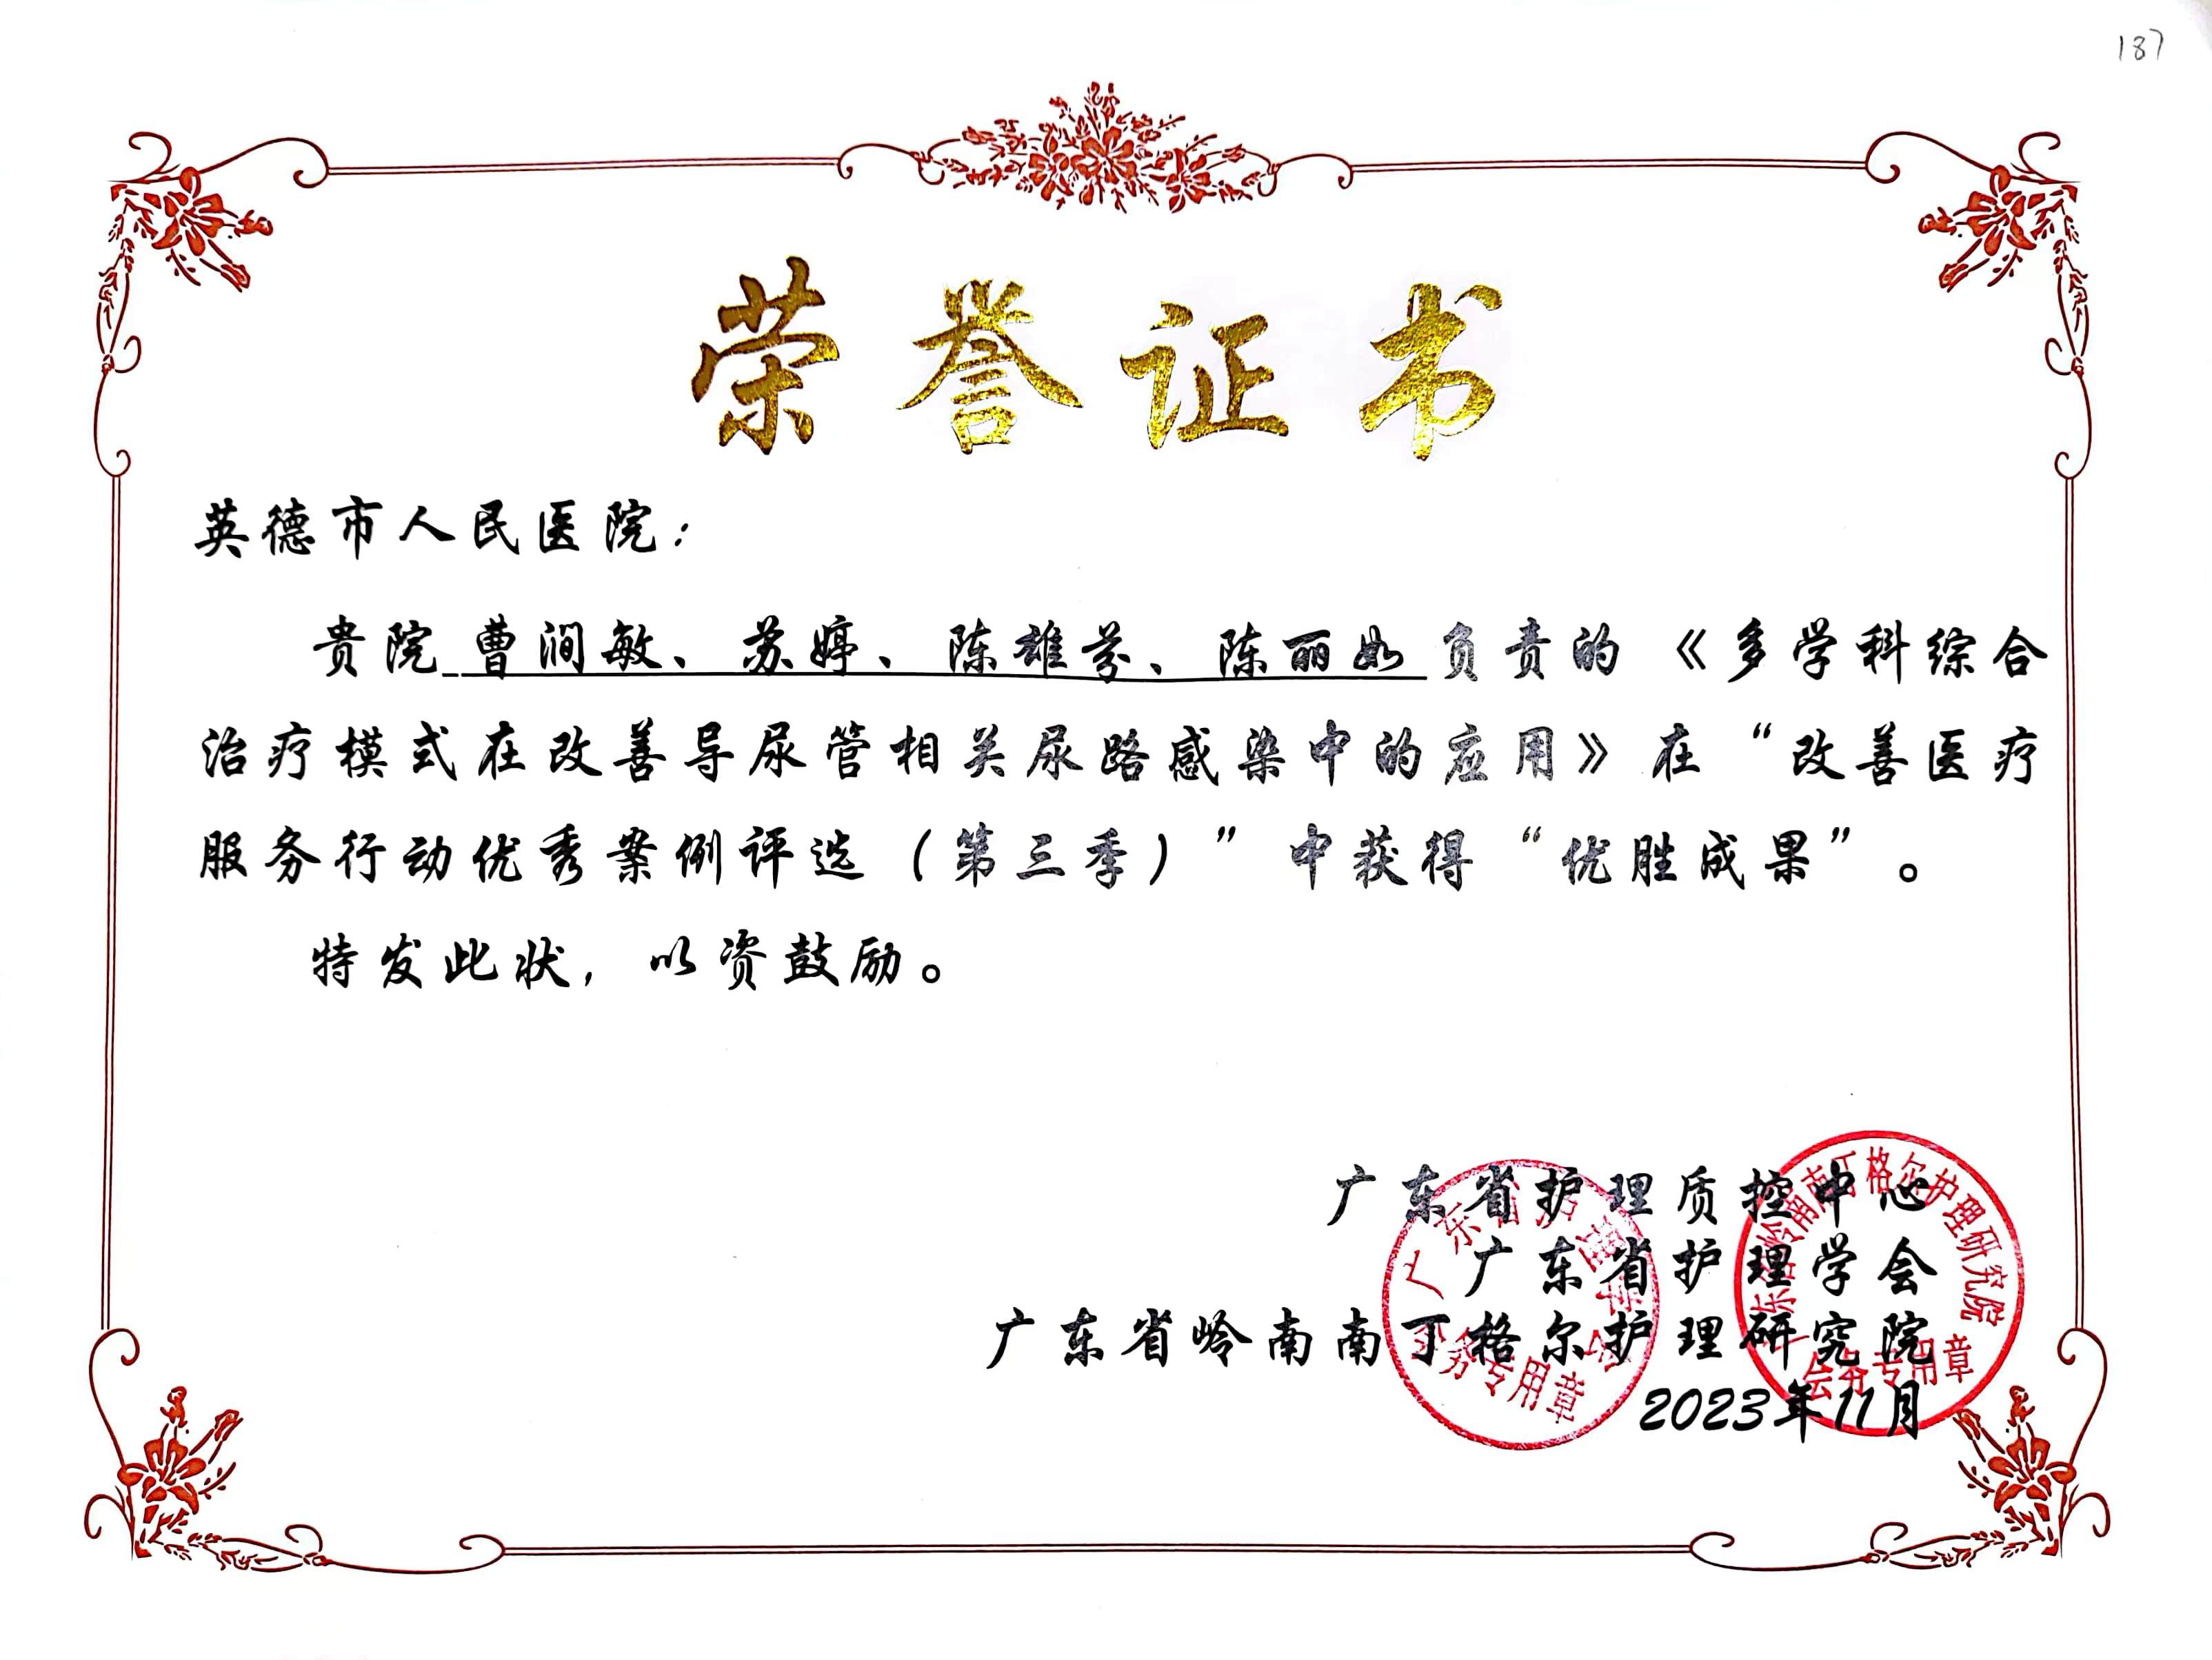 187
荣誉证书
英德市人民医院：
贵院 曹涧敏、苏婷、陈雄芬、陈丽如负责的《多学科综合
治疗模式在改善导尿管相关尿路感染中的应用》在“改善医疗
服务行动优秀案例评选（第三季）”中获得“优胜成果”。
特发此状，以资鼓励。
广东省护理质控中心
广东省护理学会
广东省岭南南丁格尔护理研究院
2023年11月
广东省护理学会
务专用章
东省岭南南丁格尔护理研究院
会务专用章